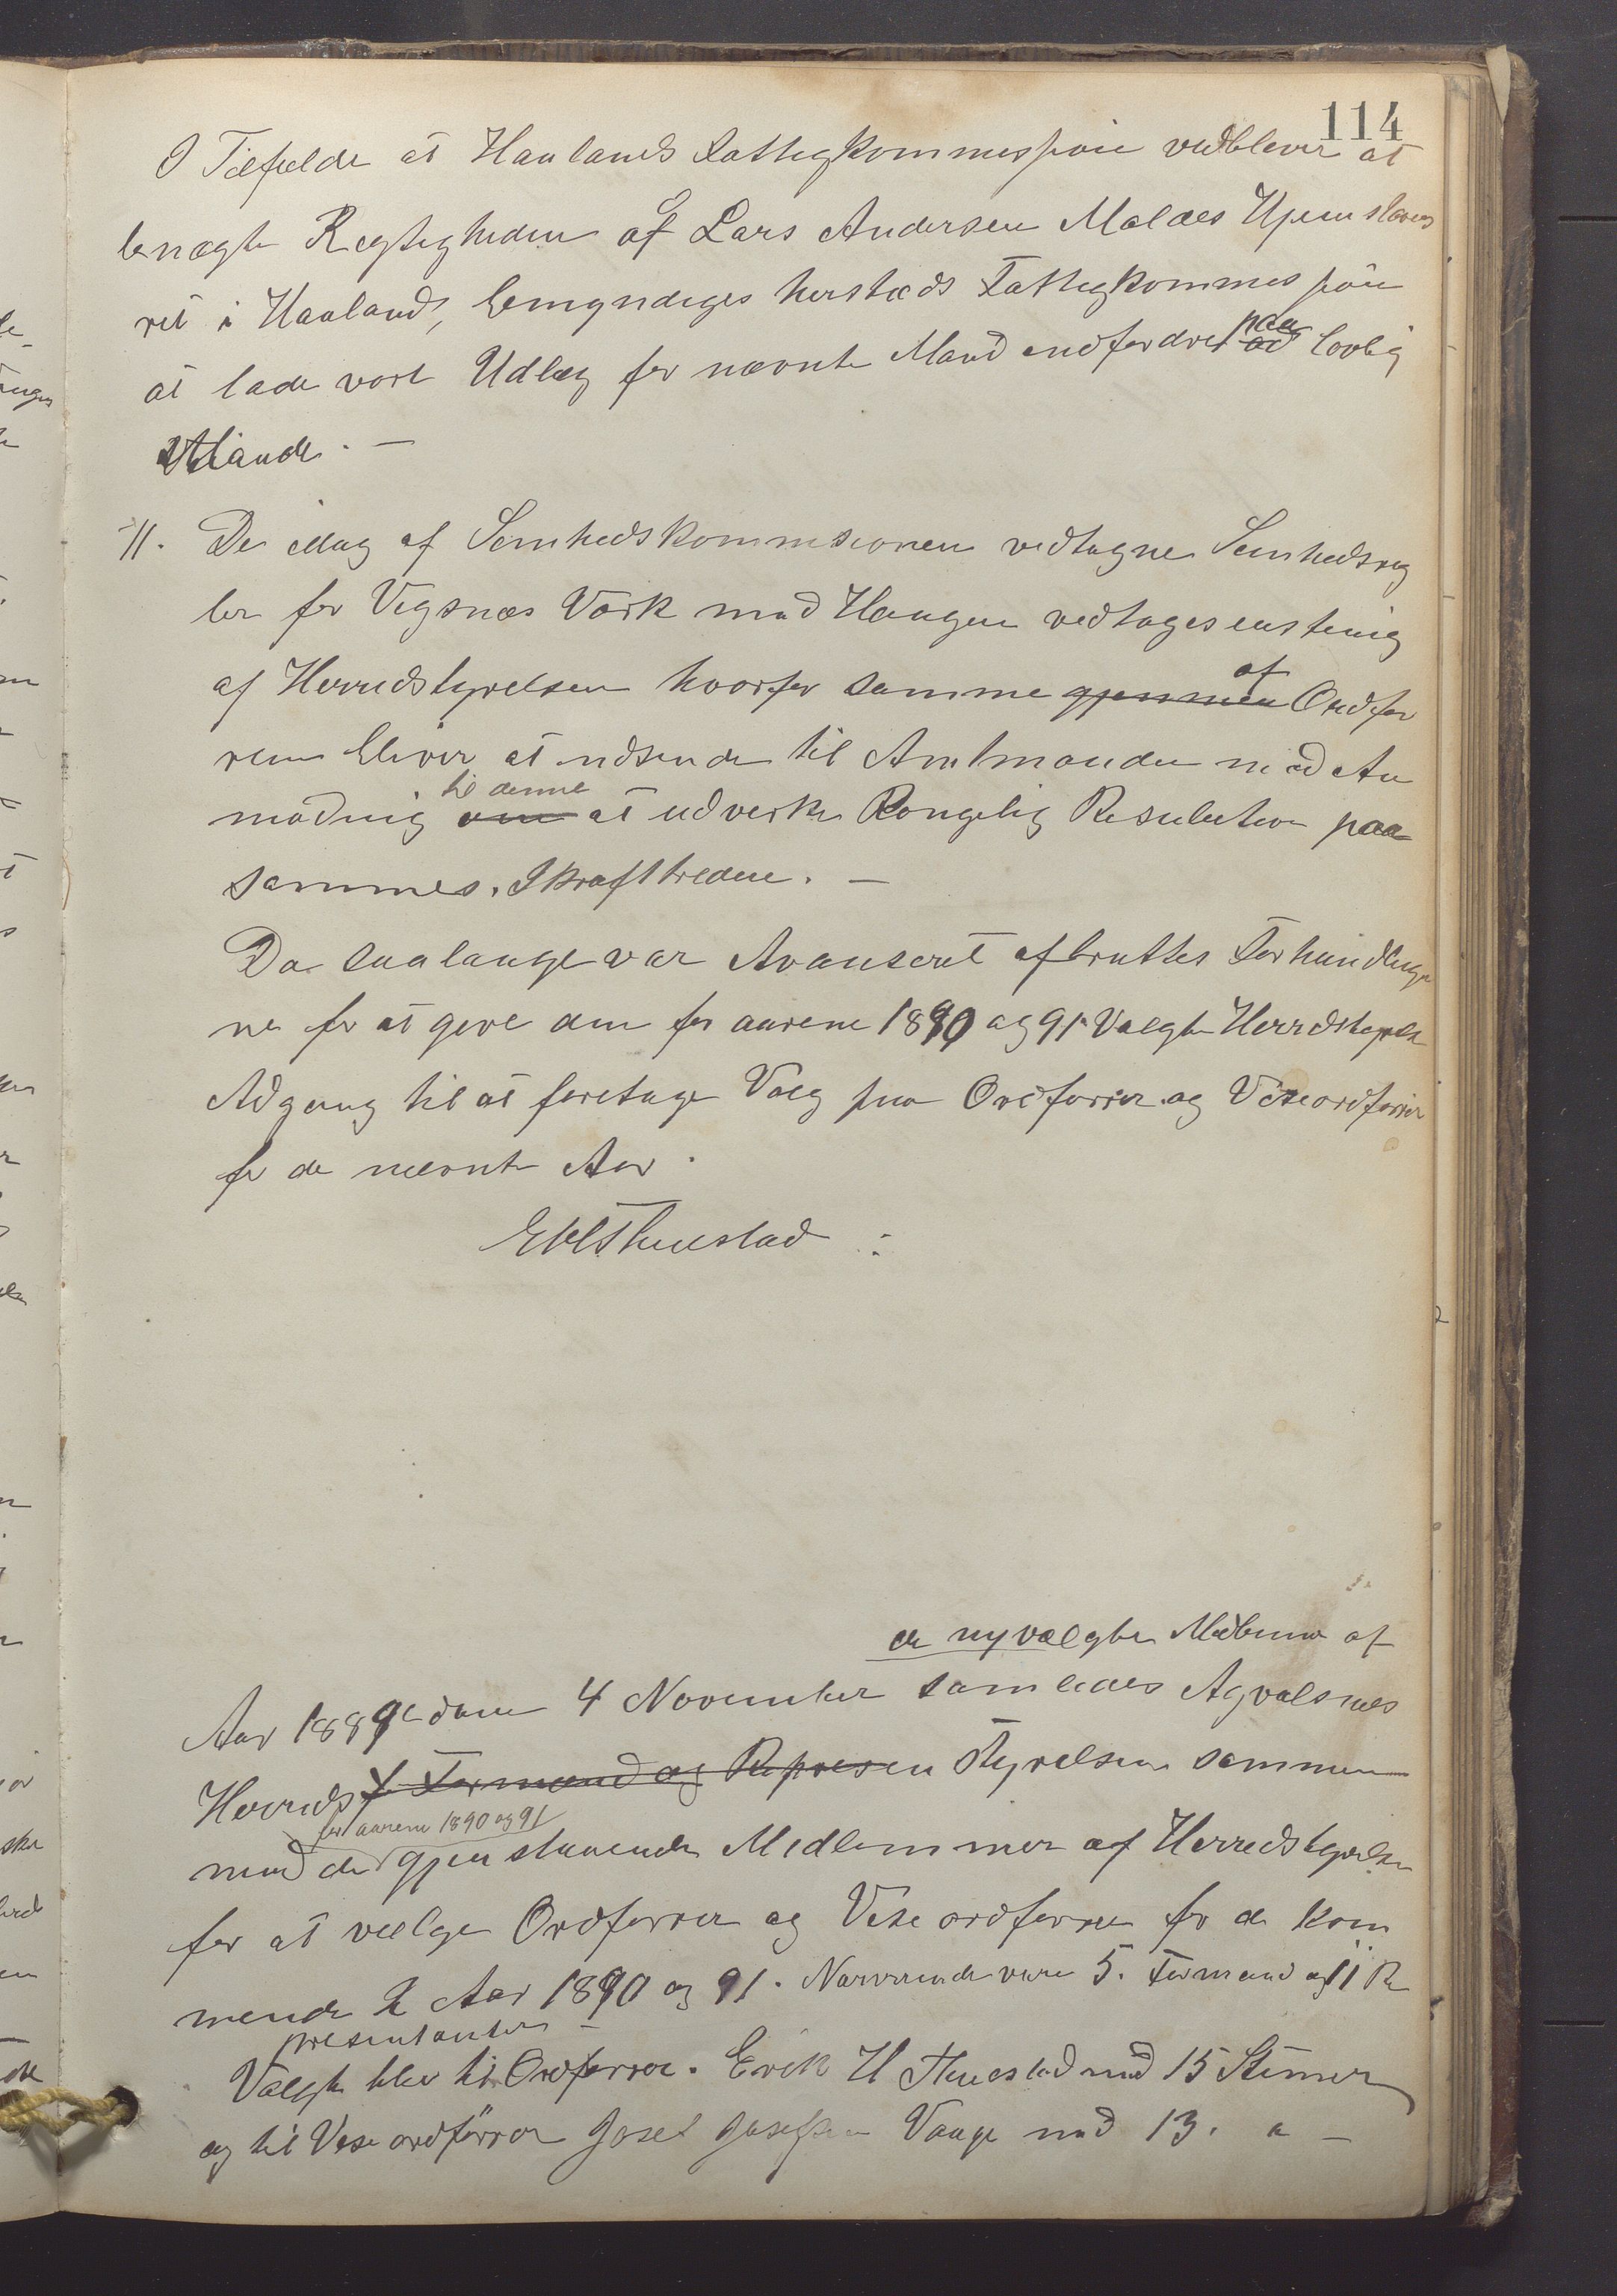 114
I Tilfælde at Haalands Fattigkommission vedbliver at
benægte Rigtigheden af Lars Andersen Maldes Hjemslavns
ret i Haaland, bemyndiges herstæds Fattigkommission
at lade vort Udlæg for nævnte Mand indfordret paa lovlig
Maade. —
11. De idag af Sunhedskommisionen vedtagne Sunhedsreg
ler for Vigsnæs Værk med Haugen vedtages enstemig
af Herredstyrelsen hvorfor samme gjennem af Ordfør
reren bliver at udsende til Amtmanden med An
modning om til denne at udvirke Kongelig Resulution paa
sammes Ikrafttreden. —
Da saalange var Avanseret afbruttes Forhandlinge
ne for at give den for aarene 1890 og 91 Valgte Herredstyrelse
Adgang til at foretage Valg paa Ordfører og Viseordfører
for de nævnte Aar.
EHThuestad
de nyvalgte Medlemer af
Aar 1889 den 4 November samledes Agvalsnæs
Herreds Formænd og Represen styrelsen sammen
for aarene 1890 og 91
med de gjenstaaende Medlemmer af Herredstyrelsen
for at vælge Ordfører og Vise ordfører for de kom
mende 2 Aar 1890 og 91. Nærværende vare 5. Formænd og 11 Re
presentanter —
Valgt blev til Ordfører. Erik H Thuestad med 15 Stemer
og til Vise ordfører Josef Josefsen Vaage med 13. " —